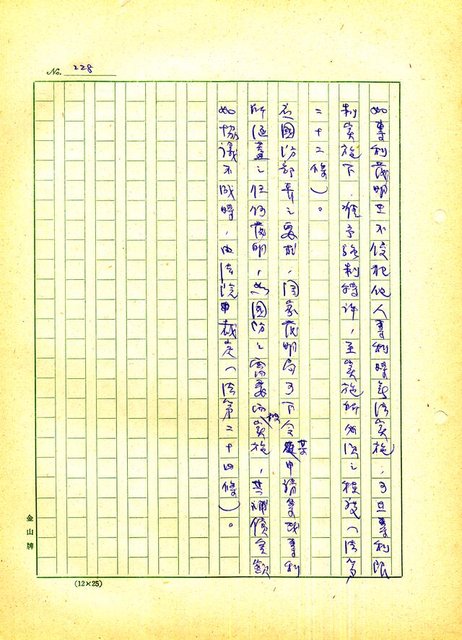 No. 228
如專利發明在不侵犯他人專利時無法實施，可且專利限
制實施下，准予強制特許，至實施所必須之程度（法第
二十二條）。
應國防部長之要求，國家發明局可下令某申請案或專利
所涵蓋之任何發明，為國防之需要而被實施，其補償金額
如協議不成時，由法院裁定（法第二十四條）。
金山牌
(12×25)